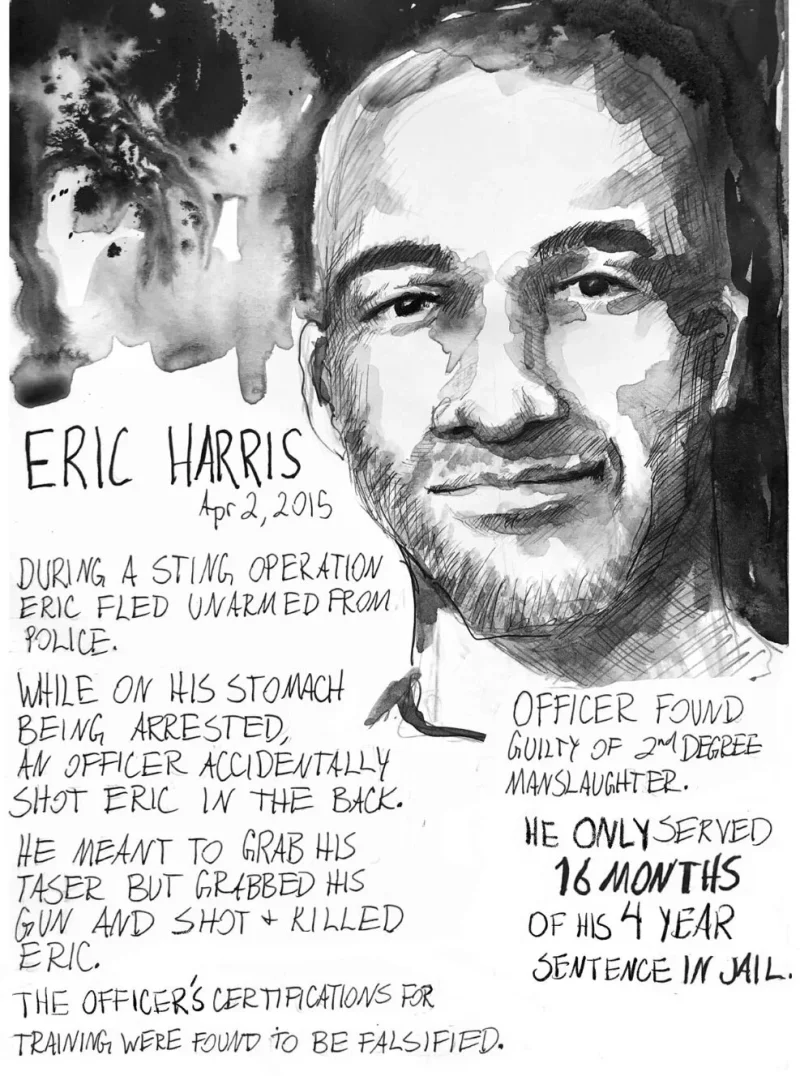 ERIC HARRIS
Apr 2, 2015
DURING A STING OPERATION
ERIC FLED UNARMED FROM
POLICE.
WHILE ON HIS STOMACH
BEING ARRESTED,
AN OFFICER ACCIDENTALLY
SHOT ERIC IN THE BACK.
HE MEANT TO GRAB HIS
TASER BUT GRABBED HIS
GUN AND SHOT + KILLED
ERIC.
THE OFFICER'S CERTIFICATIONS FOR
TRAINING WERE FOUND TO BE FALSIFIED.
OFFICER FOUND
GUILTY OF 2nd DEGREE
MANSLAUGHTER.
HE ONLY SERVED
16 MONTHS
OF HIS 4 YEAR
SENTENCE IN JAIL.